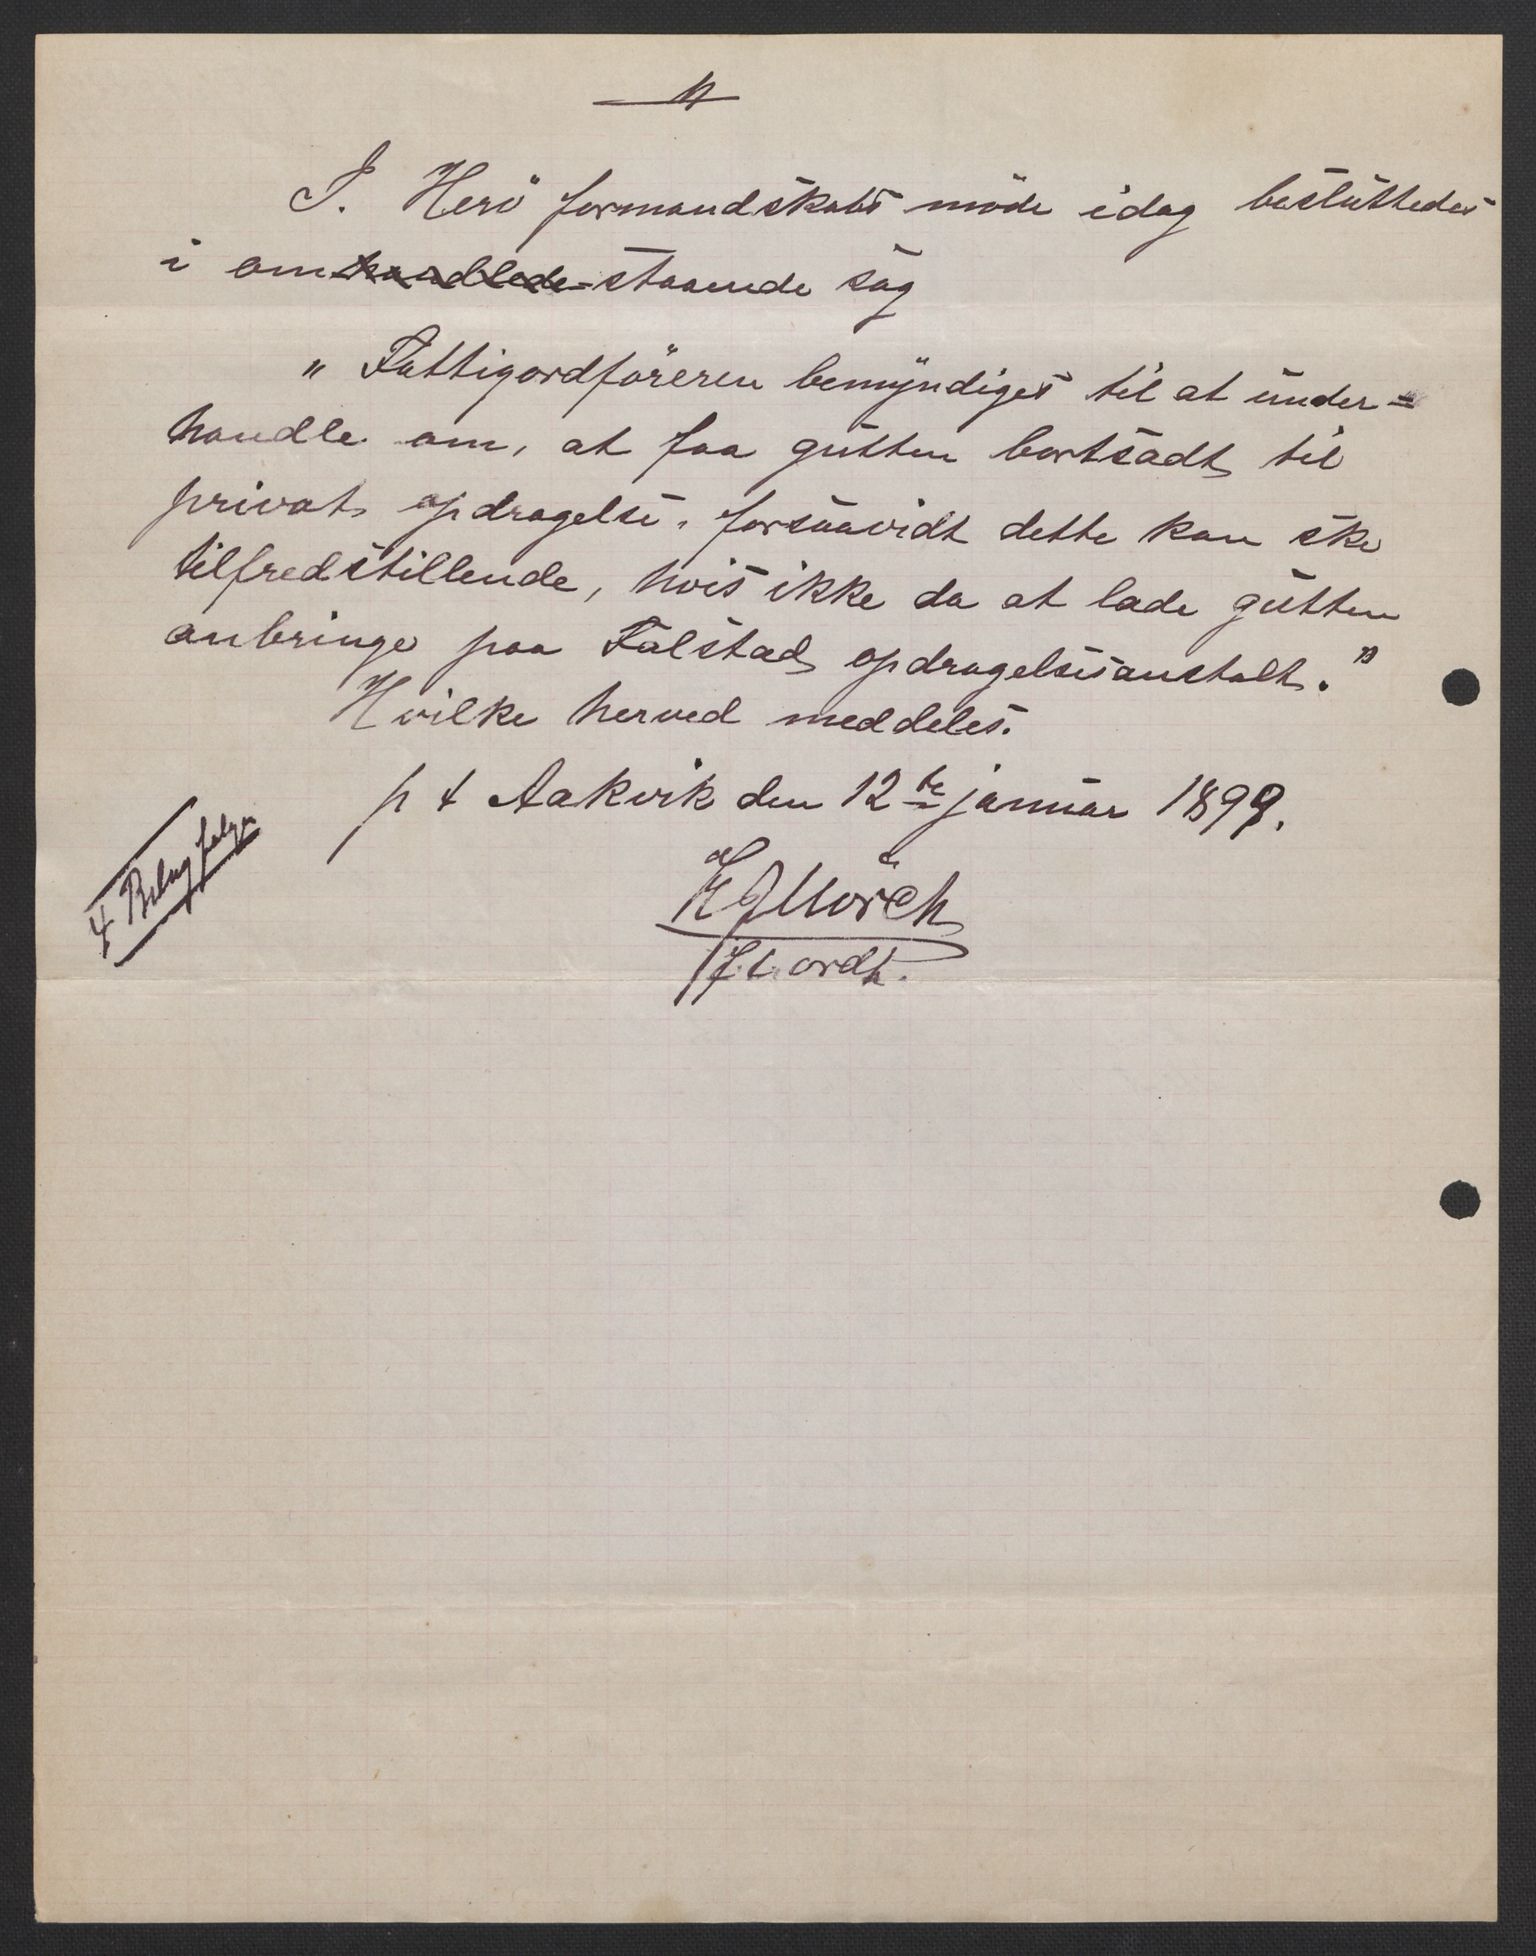 I. Herö formandskabs möde idag besluttedes
i om handlede- staaende sag
" Fattigordföreren bemyndiges til at under=
handle om, at faa gutten bortsadt til
privat opdragelse, forsaavidt dette kan ske
tilfredstillende, hvis ikke da at lade gutten
anbringe paa Falstad opdragelsesanstalt."
Hvilke herved meddeles.
p t Aakvik den 12te januar 1899.
4 Bilag følger
Mörch
ordf.